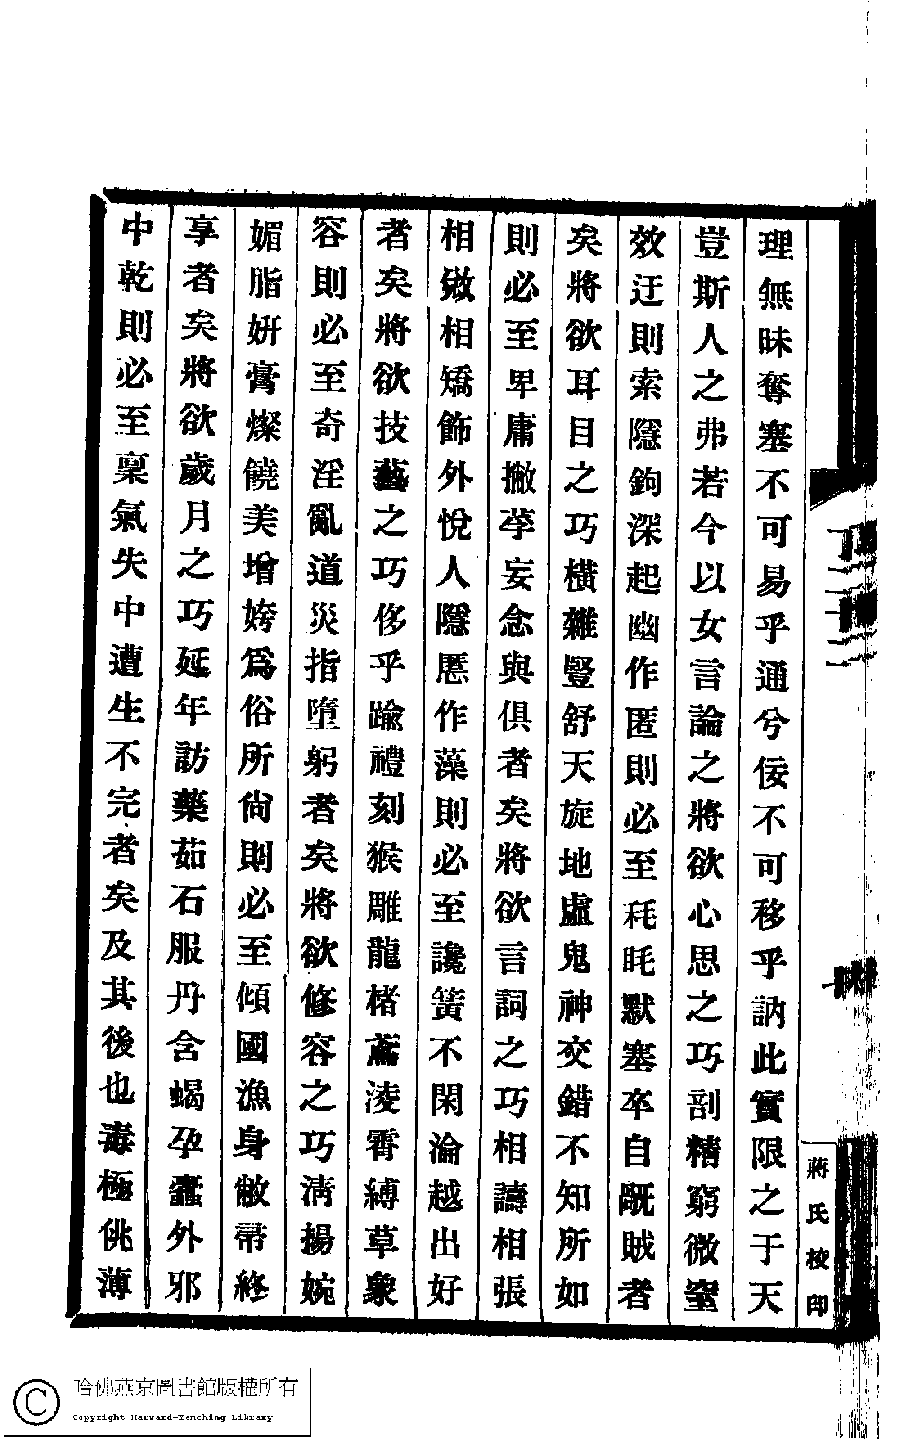 理無昧奪塞不可易乎通兮佞不可移乎訥此實限之于天
豈斯人之弗若今以女言論之將欲心思之巧剖精窮微窒
效迂則索隱鉤深起幽作匿則必至秏眊默塞卒自戕賊者
矣將欲耳目之巧橫雜豎舒天旋地盧鬼神交錯不知所如
則必至卑庸撇莩妄念與俱者矣將欲言詞之巧相譸相張
相斆相矯飾外悅人隱慝作藻則必至讒簧不閑淪越出好
者矣將欲技藝之巧侈乎踰禮刻猴雕龍楮鳶淩霄縛草象
容則必至奇淫亂道災指墮躬者矣將欲修容之巧淸揚婉
媚脂妍膏燦饒美增姱爲俗所尙則必至傾國漁身敝帚終
享者矣將欲歲月之巧延年訪藥茹石服丹含蝎孕蠹外邪
中乾則必至稟氣失中遭生不完者矣及其後也毒極佻薄
蔣氏校印
哈佛燕京圖書館版權所有
Copyright Harvard-Yenching Library